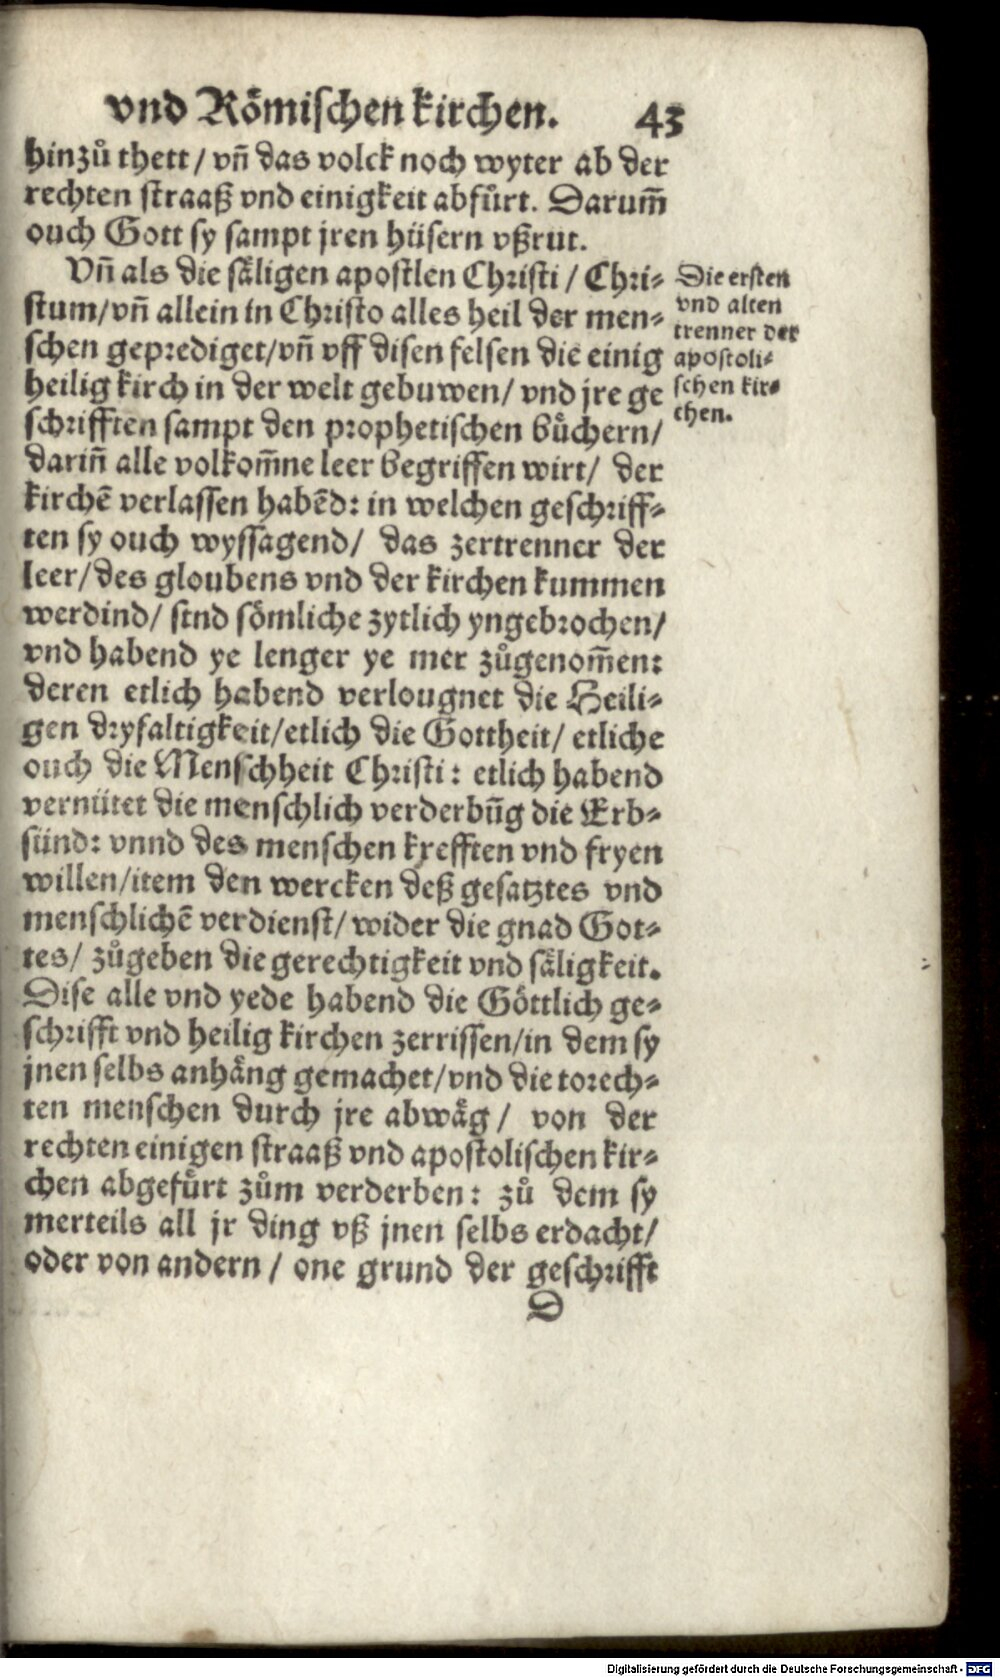 vnd Rômischen kirchen. 43
hinzů thett / vñ das volck noch wyter ab der
rechten straaß vnd einigkeit abfůrt. Darum̃
ouch Gott sy sampt jren hüsern vßrut.
Vñ als die såligen apostlen Christi / Chri⸗
stum/vñ allein in Christo alles heil der men⸗
schen geprediget/vñ vff disen felsen die einig
heilig kirch in der welt gebuwen/ vnd jre ge
schrifften sampt den prophetischen bůchern/
dariñ alle volkom̃ne leer begriffen wirt/ der
kirchẽ verlassen habẽd: in welchen geschriff⸗
ten sy ouch wyssagend/ das zertrenner der
leer/des gloubens vnd der kirchen kummen
werdind/ sind sômliche zytlich yngebrochen/
vnd habend ye lenger ye mer zůgenom̃en:
deren etlich habend verlougnet die Heili⸗
gen dryfaltigkeit/etlich die Gottheit/ etliche
ouch die Menschheit Christi: etlich habend
vernütet die menschlich verderbũg die Erb⸗
sünd: vnnd des menschen krefften vnd fryen
willen/item den wercken deß gesatztes vnd
menschlichẽ verdienst/ wider die gnad Got⸗
tes/ zůgeben die gerechtigkeit vnd såligkeit.
Dise alle vnd yede habend die Gôttlich ge⸗
schrifft vnd heilig kirchen zerrissen/in dem sy
jnen selbs anhång gemachet/vnd die torech⸗
ten menschen durch jre abwåg / von der
rechten einigen straaß vnd apostolischen kir⸗
chen abgefůrt zům verderben: zů dem sy
merteils all jr ding vß jnen selbs erdacht/
oder von andern / one grund der geschrifft
D
Die ersten
vnd alten
trenner der
apostoli⸗
schen kir⸗
chen.
Digitalisierung gefördert durch die Deutsche Forschungsgemeinschaft - DFG